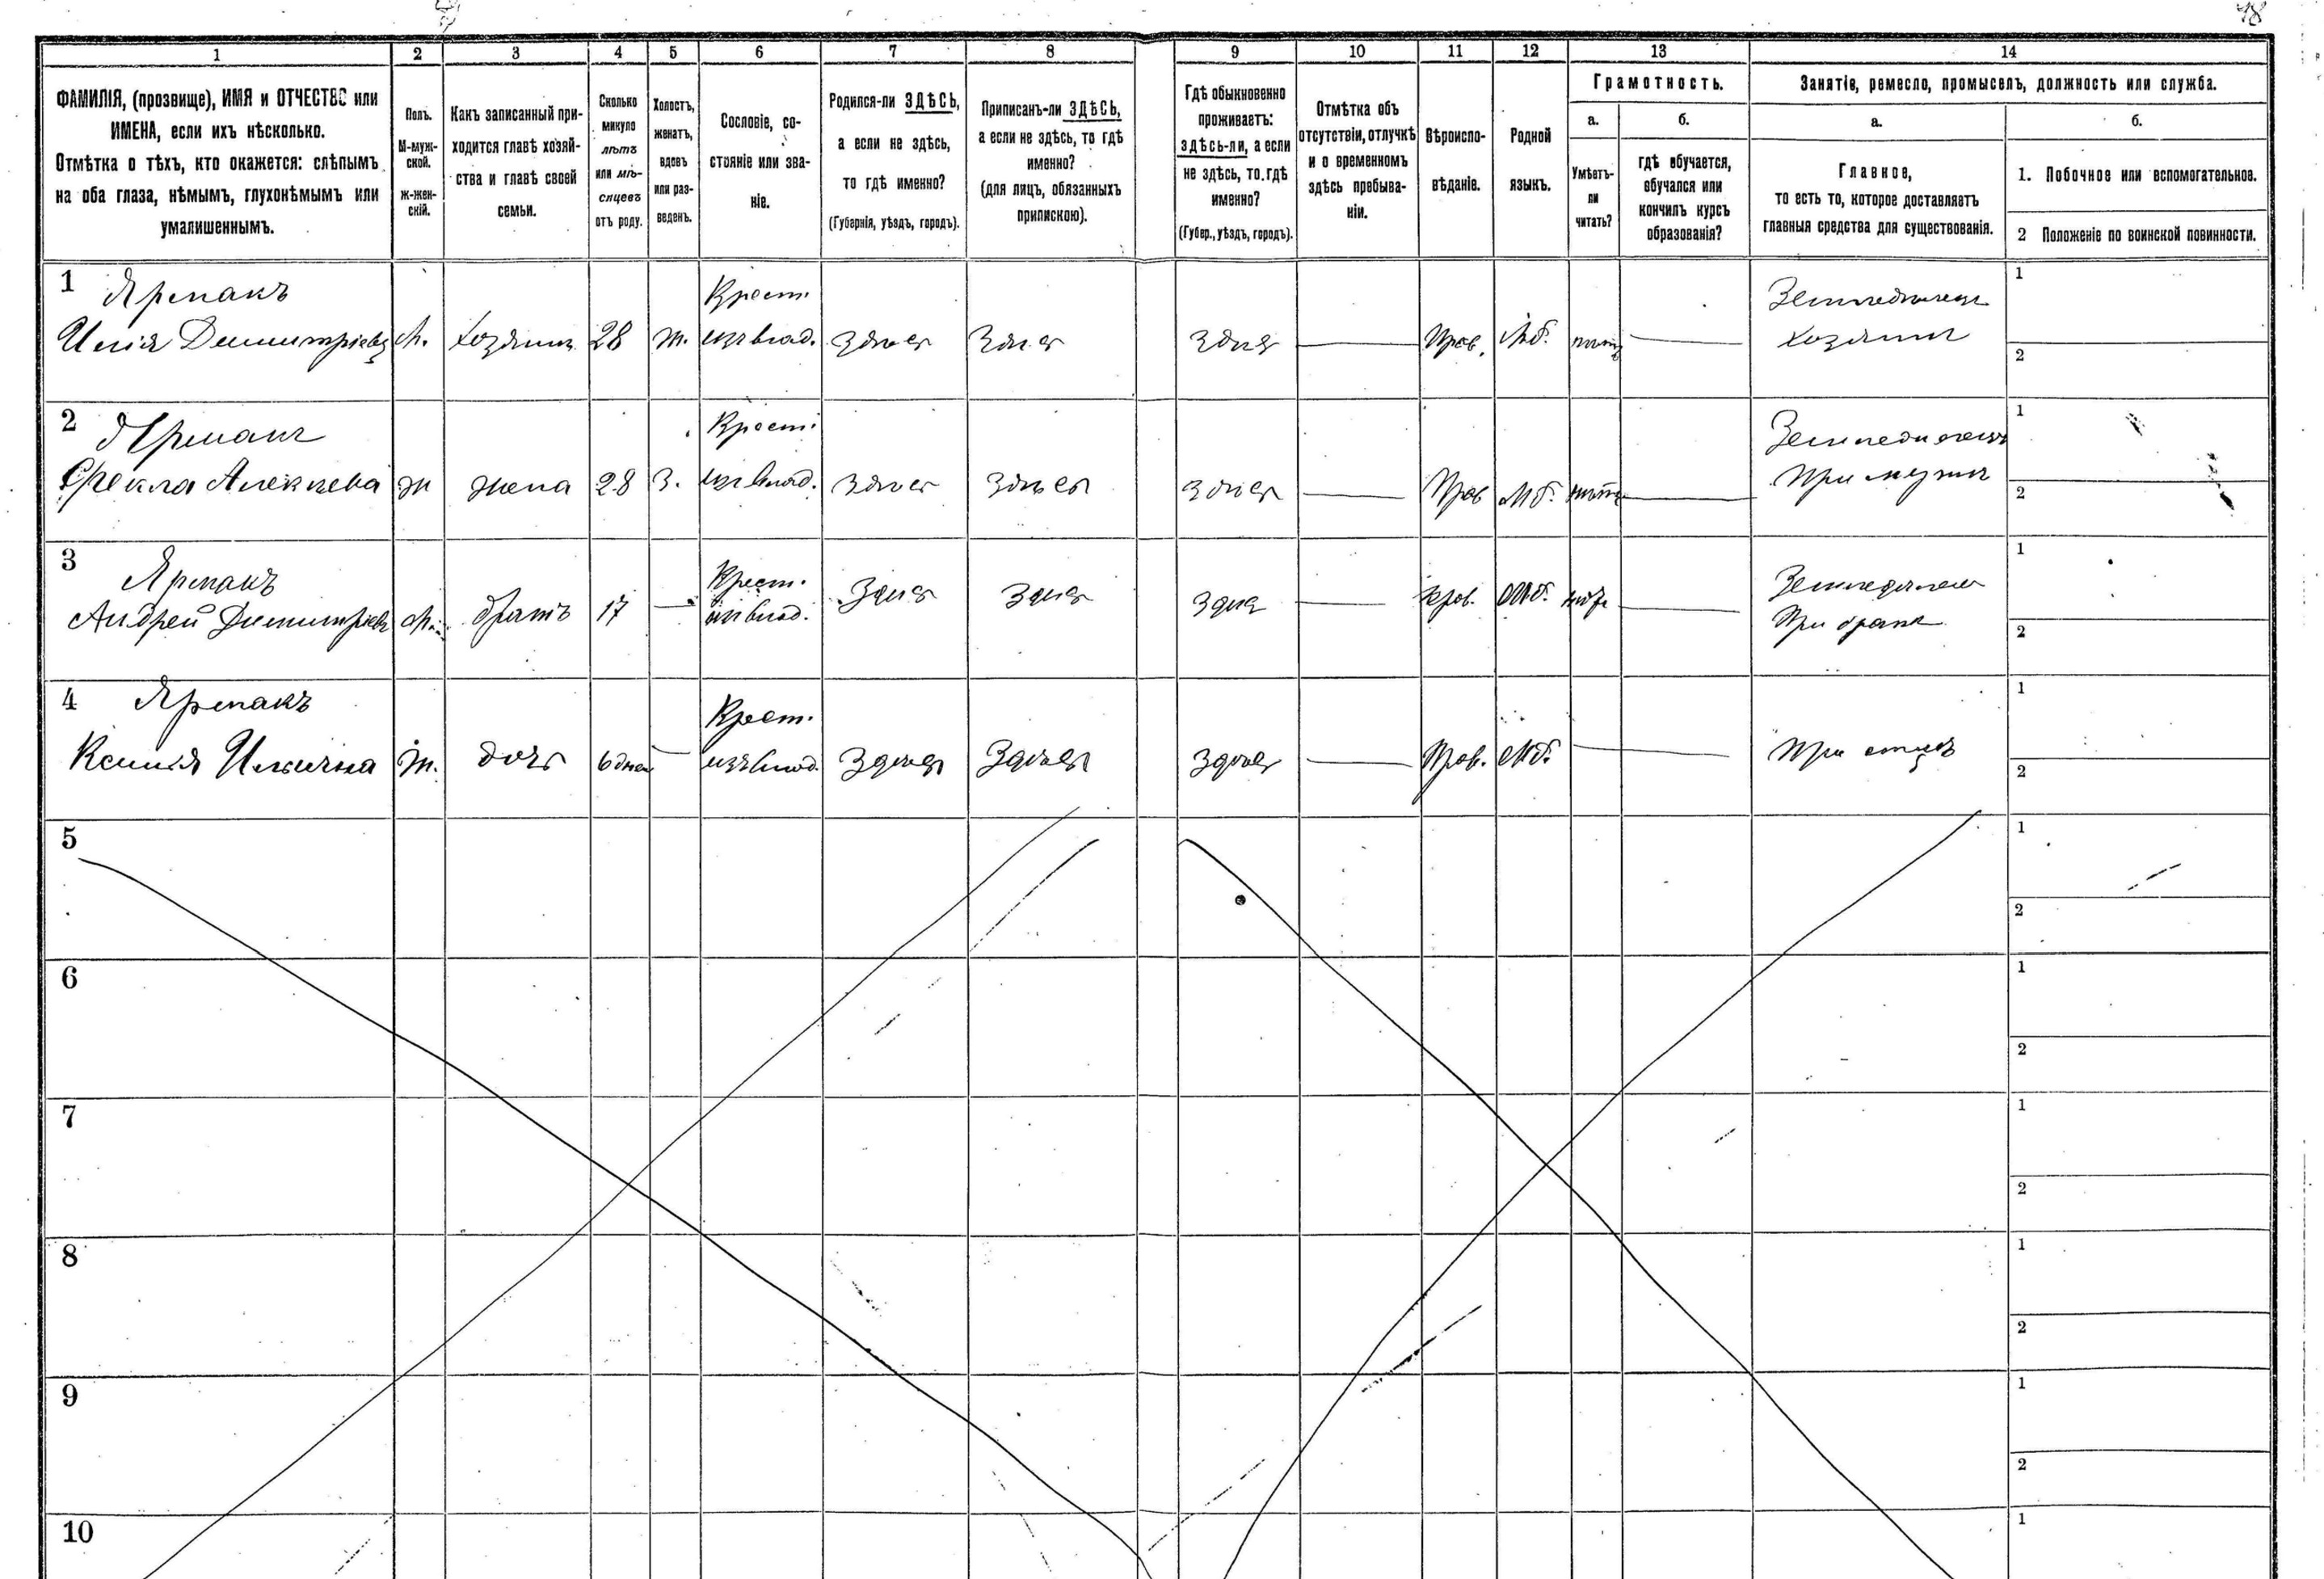 48
1 2 3 4 5 6 7 8 9 10 11 12 13 14
ФАМИЛІЯ, (прозвище), ИМЯ и ОТЧЕСТВО или
ИМЕНА, если ихъ нѣсколько.
Отмѣтка о тѣхъ, кто окажется: слѣпымъ
на оба глаза, нѣмымъ, глухонѣмымъ или
умалишеннымъ.
Полъ.
М-муж-
ской.
ж-жен-
скій.
Какъ записанный при-
ходится главѣ хозяй-
ства и главѣ своей
семьи.
Сколько
минуло
лѣтъ
или мѣ-
сяцевъ
отъ роду.
Холостъ,
женатъ,
вдовъ
или раз-
веденъ.
Сословіе, со-
стояніе или зва-
ніе.
Родился-ли ЗДѢСЬ,
а если не здѣсь,
то гдѣ именно?
(Губернія, уѣздъ, городъ).
Приписанъ-ли ЗДѢСЬ,
а если не здѣсь, то гдѣ
именно?
(для лицъ, обязанныхъ
припискою).
Гдѣ обыкновенно
проживаетъ:
здѣсь-ли, а если
не здѣсь, то гдѣ
именно?
(Губер., уѣздъ, городъ).
Отмѣтка объ
отсутствіи, отлучкѣ
и о временномъ
здѣсь пребыва-
ніи.
Вѣроиспо-
вѣданіе.
Родной
языкъ.
Грамотность.
а.
Умѣетъ-
ли
читать?
б.
гдѣ обучается,
обучался или
кончилъ курсъ
образованія?
Занятіе, ремесло, промыселъ, должность или служба.
а.
Главное,
то есть то, которое доставляетъ
главныя средства для существованія.
б.
1. Побочное или вспомогательное.
2 Положеніе по воинской повинности.
1 Ярмакъ Крест. Земледѣлецъ 1
Илія Димитріевъ М. хозяинъ 28 ж. изъ влад. здѣсь здѣсь здѣсь — Прав. Мб. нѣтъ — хозяинъ 2
2 Ярмакъ Крест. Земледѣлецъ 1
Фекла Алексѣева ж жена 28 З. изъ влад. здѣсь здѣсь здѣсь — Прав Мб. нѣтъ — При мужѣ 2
3 Ярмакъ Крест. Земледѣлец 1
Андрей Димитріевъ М. братъ 17 — изъ влад. здѣсь здѣсь здѣсь — прав. Мб. нѣтъ — При братѣ 2
4 Ярмакъ Крест. 1
Ксенія Ильична Ж. дочь 6 дней — изъ влад. здѣсь здѣсь здѣсь — Прав. Мб. — При отцѣ 2
5 1
2
6 1
2
7 1
2
8 1
2
9 1
2
10 1